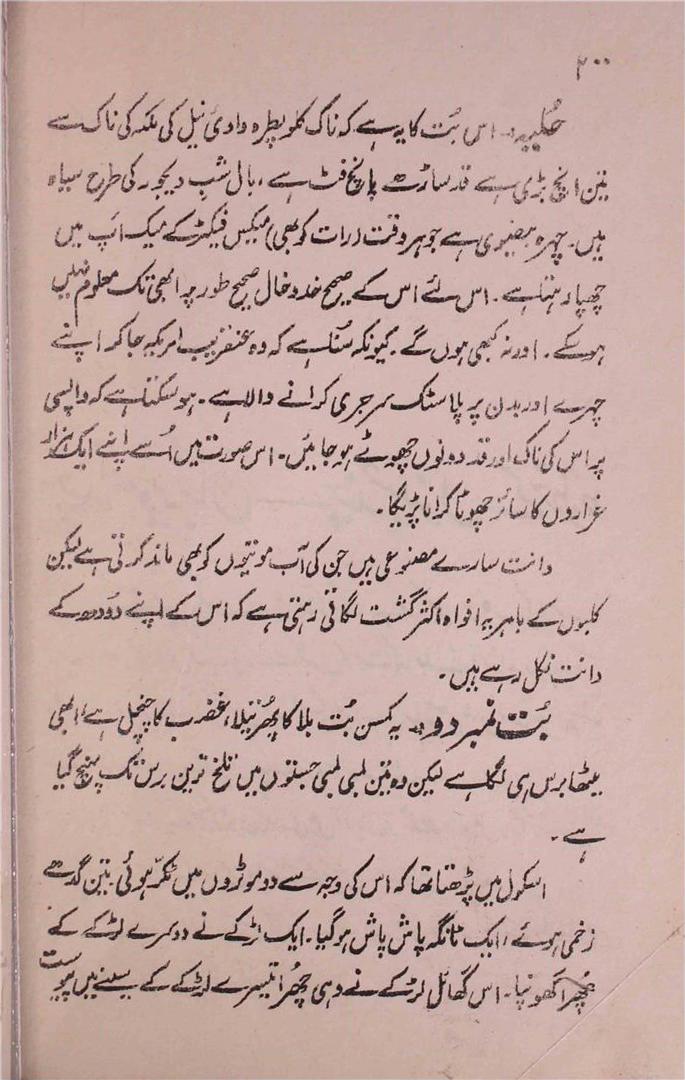 ۲۰۰
حُلیہ:۔ اس بُت کا یہ ہے کہ ناک کلوپطرہ وادیٔ نیل کی ملکہ کی ناک سے
تین انچ بڑی ہے قد ساڑھے پانچ فٹ ہے، بال شبِ دیجور کی طرح سیاہ
ہیں۔ چہرہ بیضوی ہے جو ہر وقت (رات کو بھی) میکس فیکٹر کے میک اَپ میں
چھپا رہتا ہے۔ اس لئے اس کے صحیح خدوخال صحیح طور پہ ابھی تک معلوم نہیں
ہوسکے۔ اور نہ کبھی ہوں گے۔ کیونکہ سُنا ہے کہ وہ عنقریب امریکہ جا کر اپنے
چہرے اور بدن پر پلاسٹک سرجری کرانے والا ہے۔ ہوسکتا ہے کہ واپسی
پر اس کی ناک اور قد دونوں چھوٹے ہو جائیں۔ اس صورت میں اُسے اپنے ایک ہزار
غراروں کا سائز چھوٹا کرانا پڑیگا۔
دانت سارے مصنوعی ہیں جن کی آب موتیوں کو بھی ماند کرتی ہے لیکن
کلبوں کے باہر یہ افواہ اکثر گشت لگاتی رہتی ہے کہ اس کے اپنے دودھ کے
دانت نکل رہے ہیں۔
بُت نمبر دو:۔ یہ کمسن بُت بلا کا پھُرتیلا، غضب کا چنچل ہے! ابھی
میٹھا برس ہی لگا ہے لیکن وہ تین لمبی لمبی جستوں میں تلخ ترین برس تک پہنچ گیا
ہے۔
اسکول میں پڑھتا تھا کہ اس کی وجہ سے دو موٹروں میں ٹکر ہوئی۔ تین گدھے
زخمی ہوئے، ایک ٹانگہ پاش پاش ہوگیا۔ ایک لڑکے نے دوسرے لڑکے کے
چھُرا گھونپا۔ اس گھائل لڑکے نے وہی چھُرا تیسرے لڑکے کے سینے میں پیوست